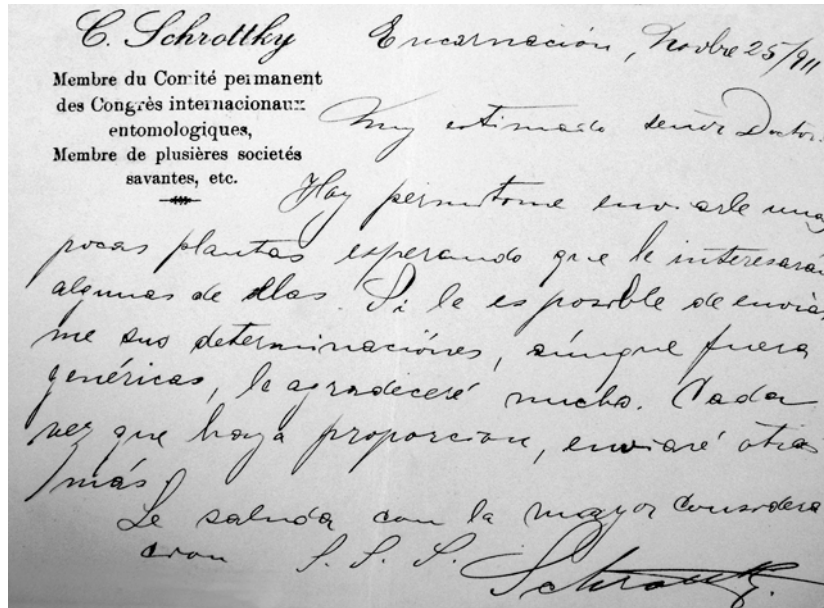 C. Schrottky
Encarnación, Novbre 25/911
Membre du Comité permanent
des Congrès internacionaux
entomologiques,
Membre de plusières societés
savantes, etc.
Muy estimado señor Doctor.
Hoy permitome enviarle unas
pocas plantas esperando que le interesarán
algunas de ellas. Si le es posible de enviar
me sus determinaciónes, aúnque fuera
genéricas, le agradeceré mucho. Cada
vez que haya proporcion, enviaré otras
más.
Le saluda con la mayor considera
cion S. S. S.
Schrottky.